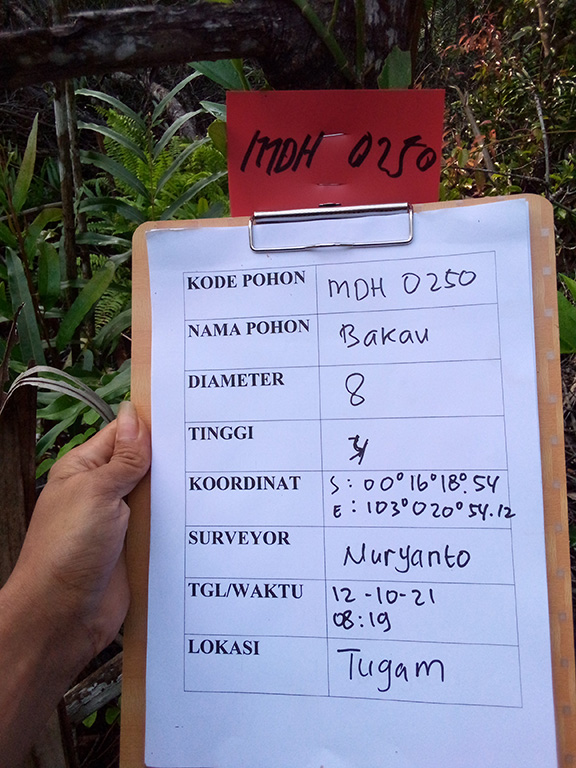 MDH 0250
KODE POHON MDH 0250
NAMA POHON Bakau
DIAMETER 8
TINGGI
KOORDINAT S : 00°16°18°.54
E : 103°020°54.12
SURVEYOR Nuryanto
TGL/WAKTU 12-10-21
08:19
LOKASI Tugam